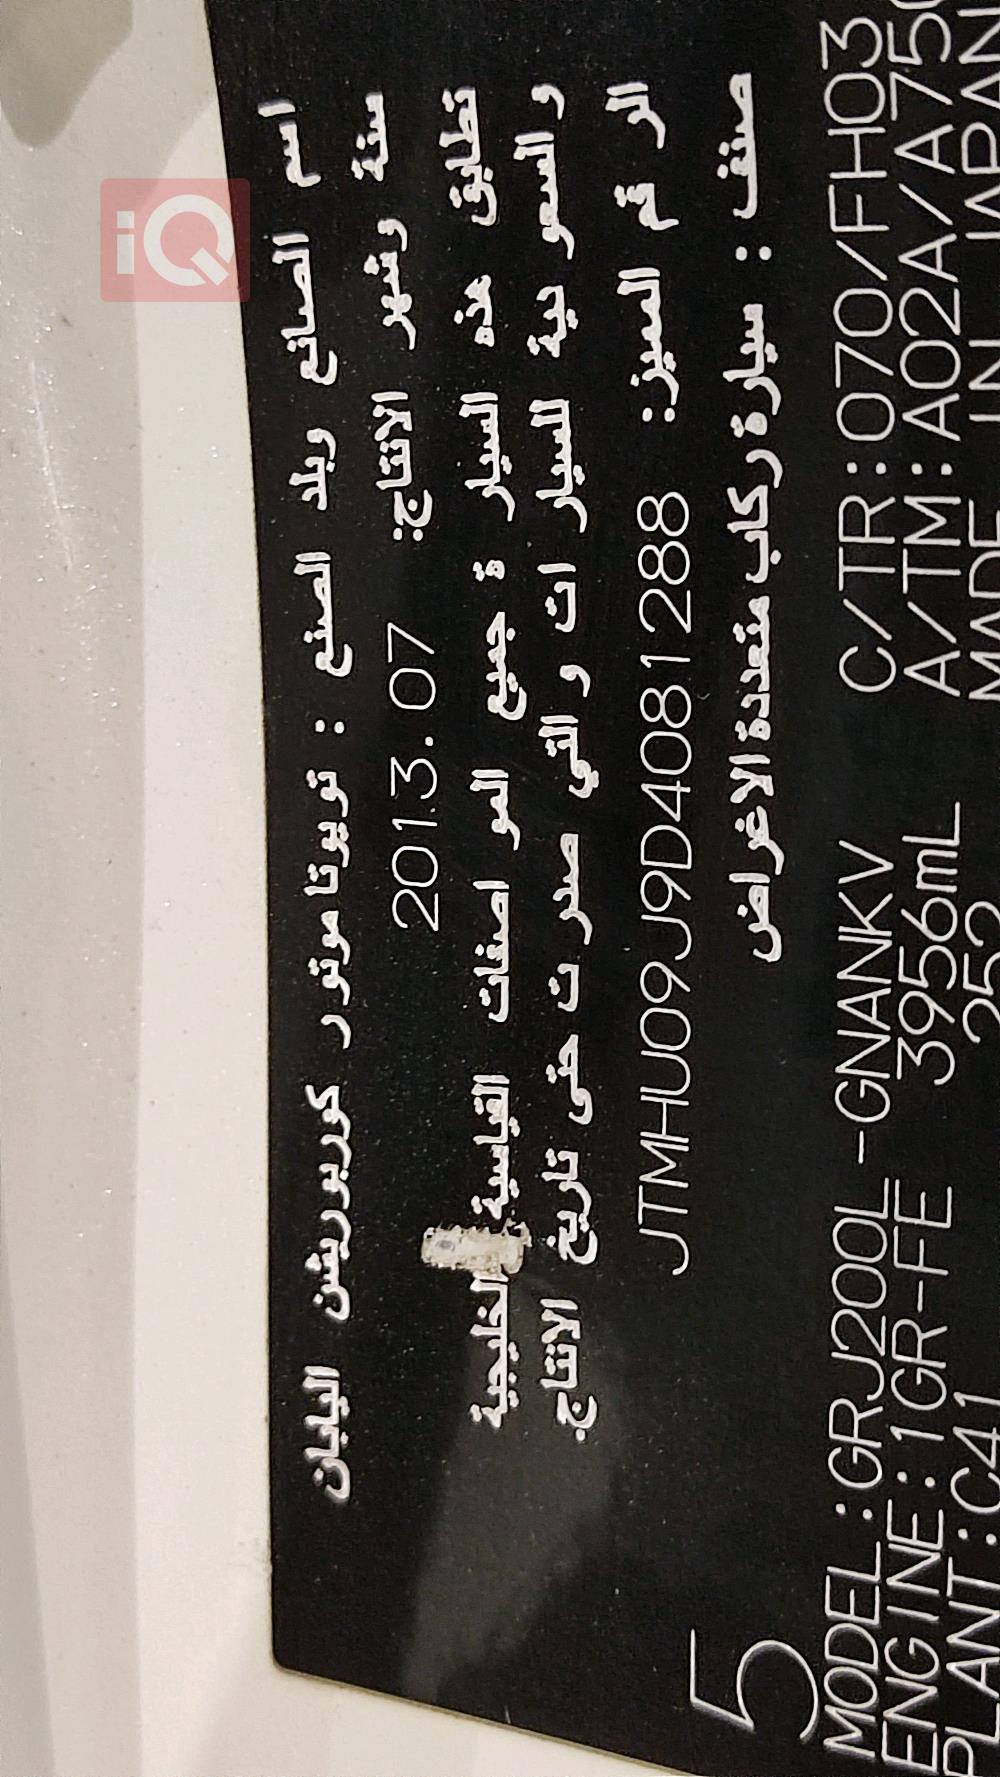 iQ
اسم الصانع وبلد الصنع : تويوتا موتور كوربوريشن اليابان
سنة وشهر الانتاج: 2013.07
تطابق هذه السيارة جميع المواصفات القياسية الخليجية
والسعودية للسيارات والتي صدرت حتى تاريخ الانتاج.
الرقم المميز: JTMHU09J9D4081288
صنف : سيارة ركاب متعددة الاغراض
5
MODEL:GRJ200L-GNANKV C/TR:070/FH03
ENGINE:1GR-FE 3956mL A/TM:A02A/A750
PLANT:C41 252 MADE IN JAPAN